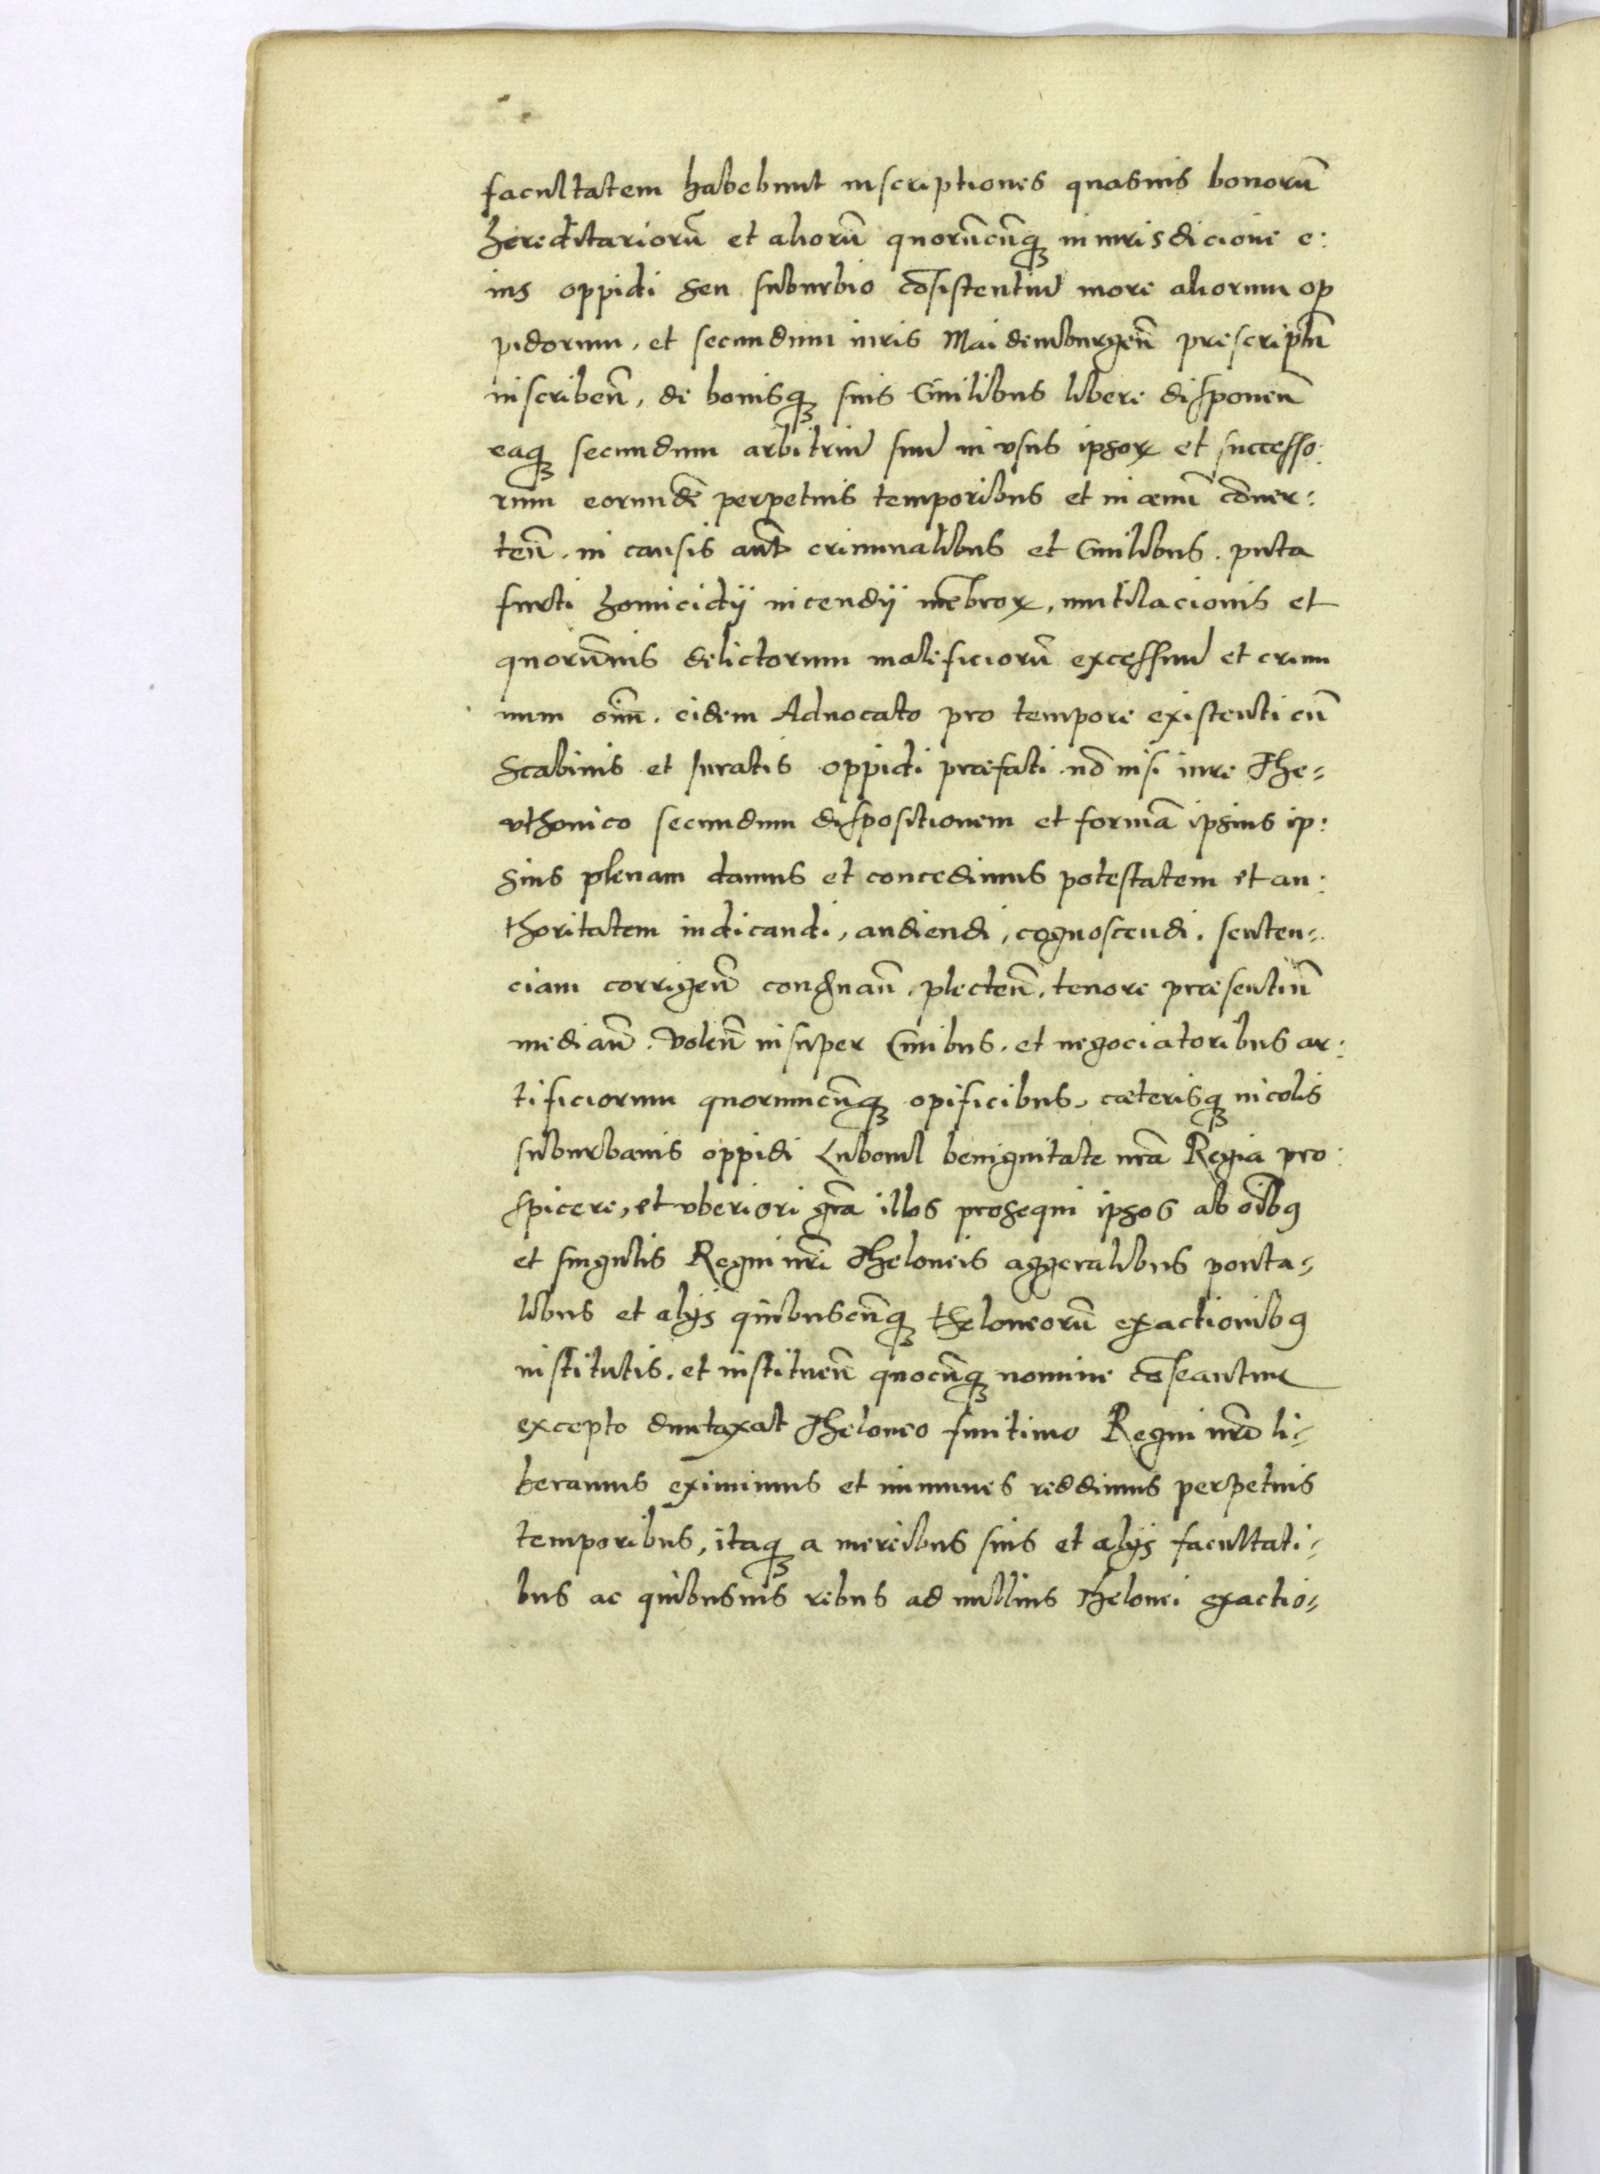 facultatem habebunt inscriptiones quasuis bonorū
hereditariorū et aliorū quorūcūq₃ in iurisdicione e:
ius oppidi seu suburbio cōsistentiū more aliorum op
pidorum, et secundum iuris Maidemburgeñ prescriptū
inscribeñ, de bonisq₃ suis Ciuilibus libere disponeñ
eaq₃ secundum arbitriū suū in vsus ipsoꝝ et successo:
rum eorundē perpetuis temporibus et in æuū cōuer:
teñ. in causis aūt criminalibus et Ciuilibus. puta
furti homicidij incendij mēbroꝝ, mutilacionis et
quorūuis delictorum maleficiorū excessuū et crimi
num oīm. eidem Aduocato pro tempore existenti cū
Scabinis et Iuratis oppidi præfati nō nisi iure The=
vthonico secundum dispositionem et formā ipsius ip:
sius plenam damus et concedimus potestatem et au:
thoritatem iudicandi, audiendi, cognoscendi. senten=
ciam corrigeñ condēnañ. plecteñ. tenore præsentiū
mediañ. Voleñ insuper Ciuibus. et negociatoribus ar:
tificiorum quorumcūq₃ opificibus, cæterisq₃ incolis
suburbanis oppidi Luboml benignitate nrā Regia pro:
spicere, et vberiori grā illos prosequi ipsos ab oībꝰ
et singulis Regni nrī Theloneis aggeralibus ponta=
libus et alijs quibuscūq₃ theloneorū exactionibꝰ
institutis. et instituēn quocūq₃ nomine cēseantur
excepto duntaxat Theloneo finitimo Regni nrī li=
beramus eximimus et immunes reddimus perpetuis
temporibus, itaq₃ a mercibus suis et alijs facultati=
bus ac quibusuis rebus ad nullius thelonei exactio=